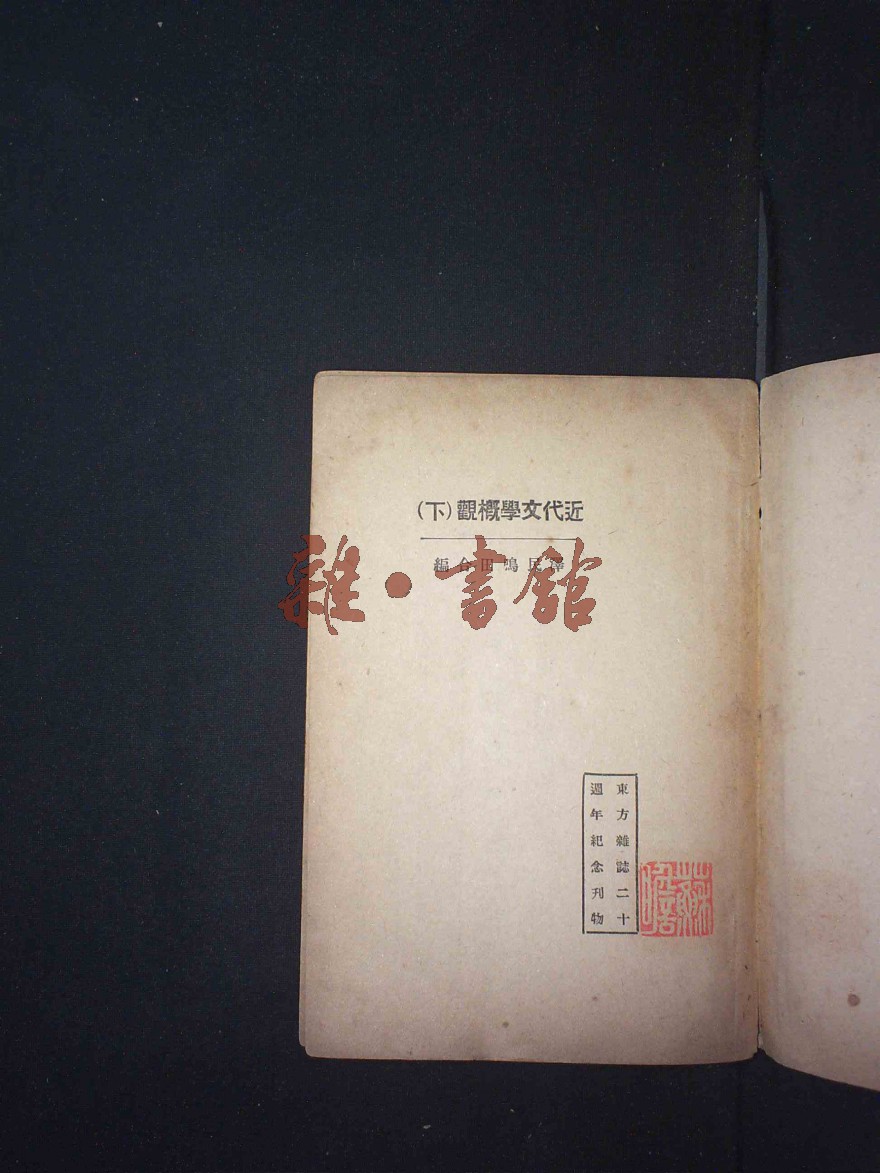 近代文學概觀（下）
澤民鳴田合編
雜·書館
東方雜誌二十
週年紀念刊物
蘇